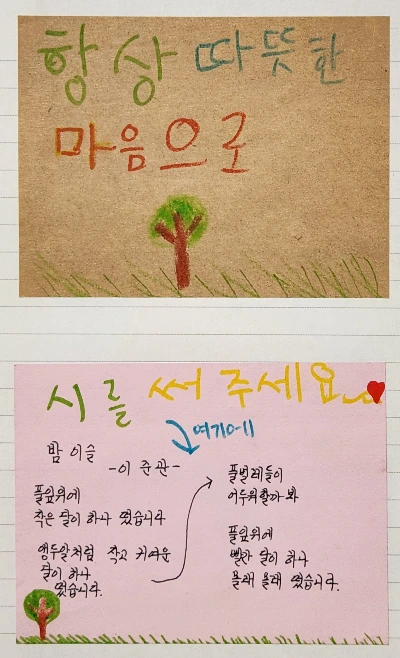 항상 따뜻한
마음으로
시를 써 주세요
여기에
밤 이슬
-이 준 관-
풀잎위에
작은 달이 하나 떴습니다
앵두알처럼 작고 귀여운
달이 하나
떴습니다.
풀벌레들이
어두워할까 봐
풀잎위에
빨간 달이 하나
몰래 몰래 떴습니다.